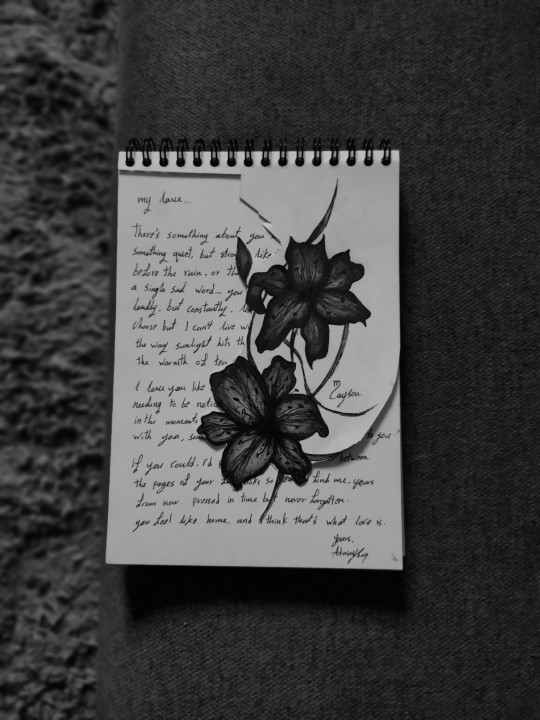 my love...
There's something about you
something quiet, but stro like
before the rain. or th
a single sad word... you
loudly. but constantly.
choose but I can't live w
the way sunlight hits th
the warmth of tea
I love you like
needing to be notic
in the moment
Cayson
with you, som to you
If you could. I'd between
the pages of your so find me. years
from now pressed in time but never forgotten.
you feel like home. and I think that's what love is.
yours.